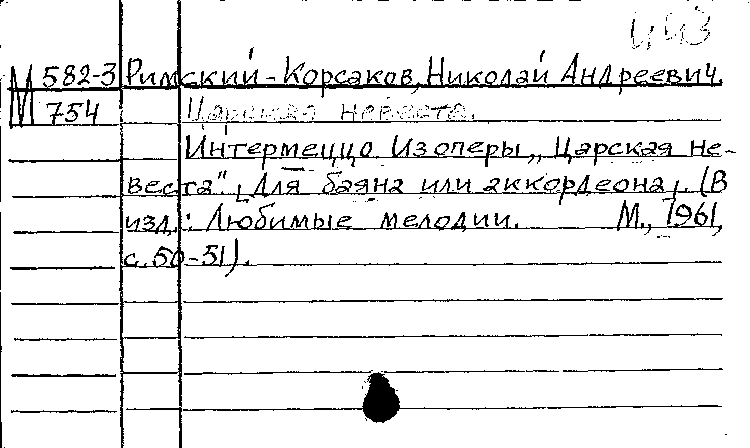 М 582-3 Римский-Корсаков, Николай Андреевич.
754 Царская невеста.
Интермеццо из оперы „Царская не-
веста". [Для баяна или аккордеона]. (В
изд.: Любимые мелодии. М., 1961,
с. 50-51).